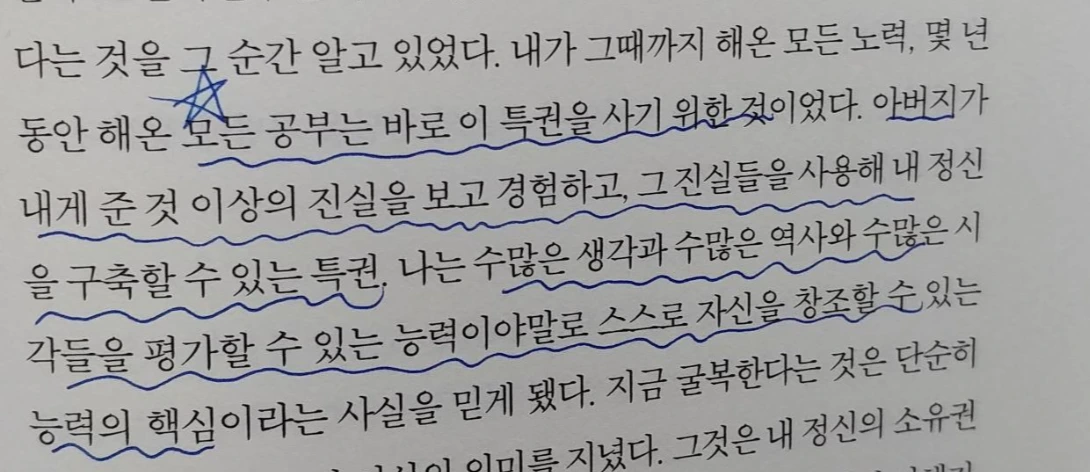 다는 것을 그 순간 알고 있었다. 내가 그때까지 해온 모든 노력, 몇 년
동안 해온 모든 공부는 바로 이 특권을 사기 위한 것이었다. 아버지가
내게 준 것 이상의 진실을 보고 경험하고, 그 진실들을 사용해 내 정신
을 구축할 수 있는 특권. 나는 수많은 생각과 수많은 역사와 수많은 시
각들을 평가할 수 있는 능력이야말로 스스로 자신을 창조할 수 있는
능력의 핵심이라는 사실을 믿게 됐다. 지금 굴복한다는 것은 단순히
의미를 지녔다. 그것은 내 정신의 소유권